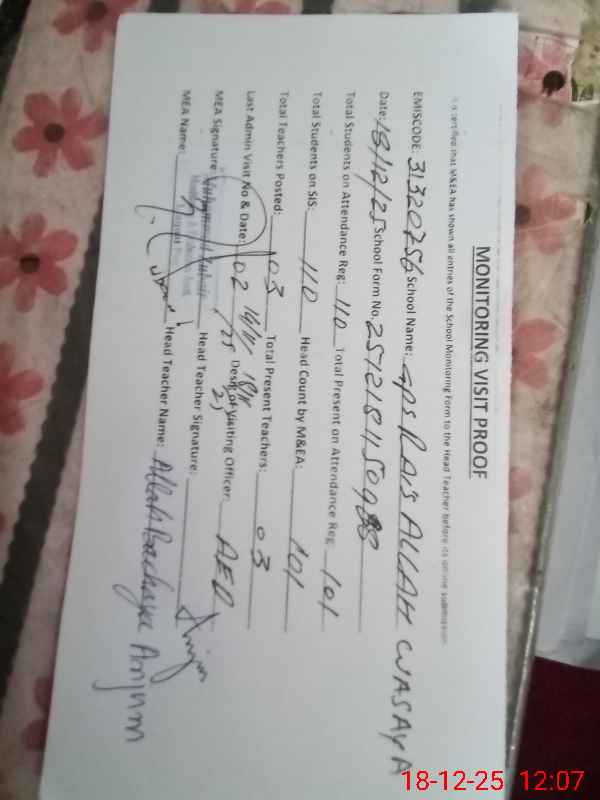 MONITORING VISIT PROOF
It is certified that M&EA has shown all entries of the School Monitoring Form to the Head Teacher before its online submission
EMISCODE: 31320756 School Name: GPS RAIS ALLAH WASAYA
Date: 18/12/25 School Form No. 
Total Students on Attendance Reg: 110 Total Present on Attendance Reg: 101
Total Students on SIS: 110 Head Count by M&EA: 101
Total Teachers Posted: 03 Total Present Teachers: 03
Last Admin Visit No & Date: 02 Desg of Visiting Officer: AEO
MEA Signature: Head Teacher Signature: Anjum
MEA Name: Head Teacher Name: Allah Bachaya Anjum
18-12-25 12:07